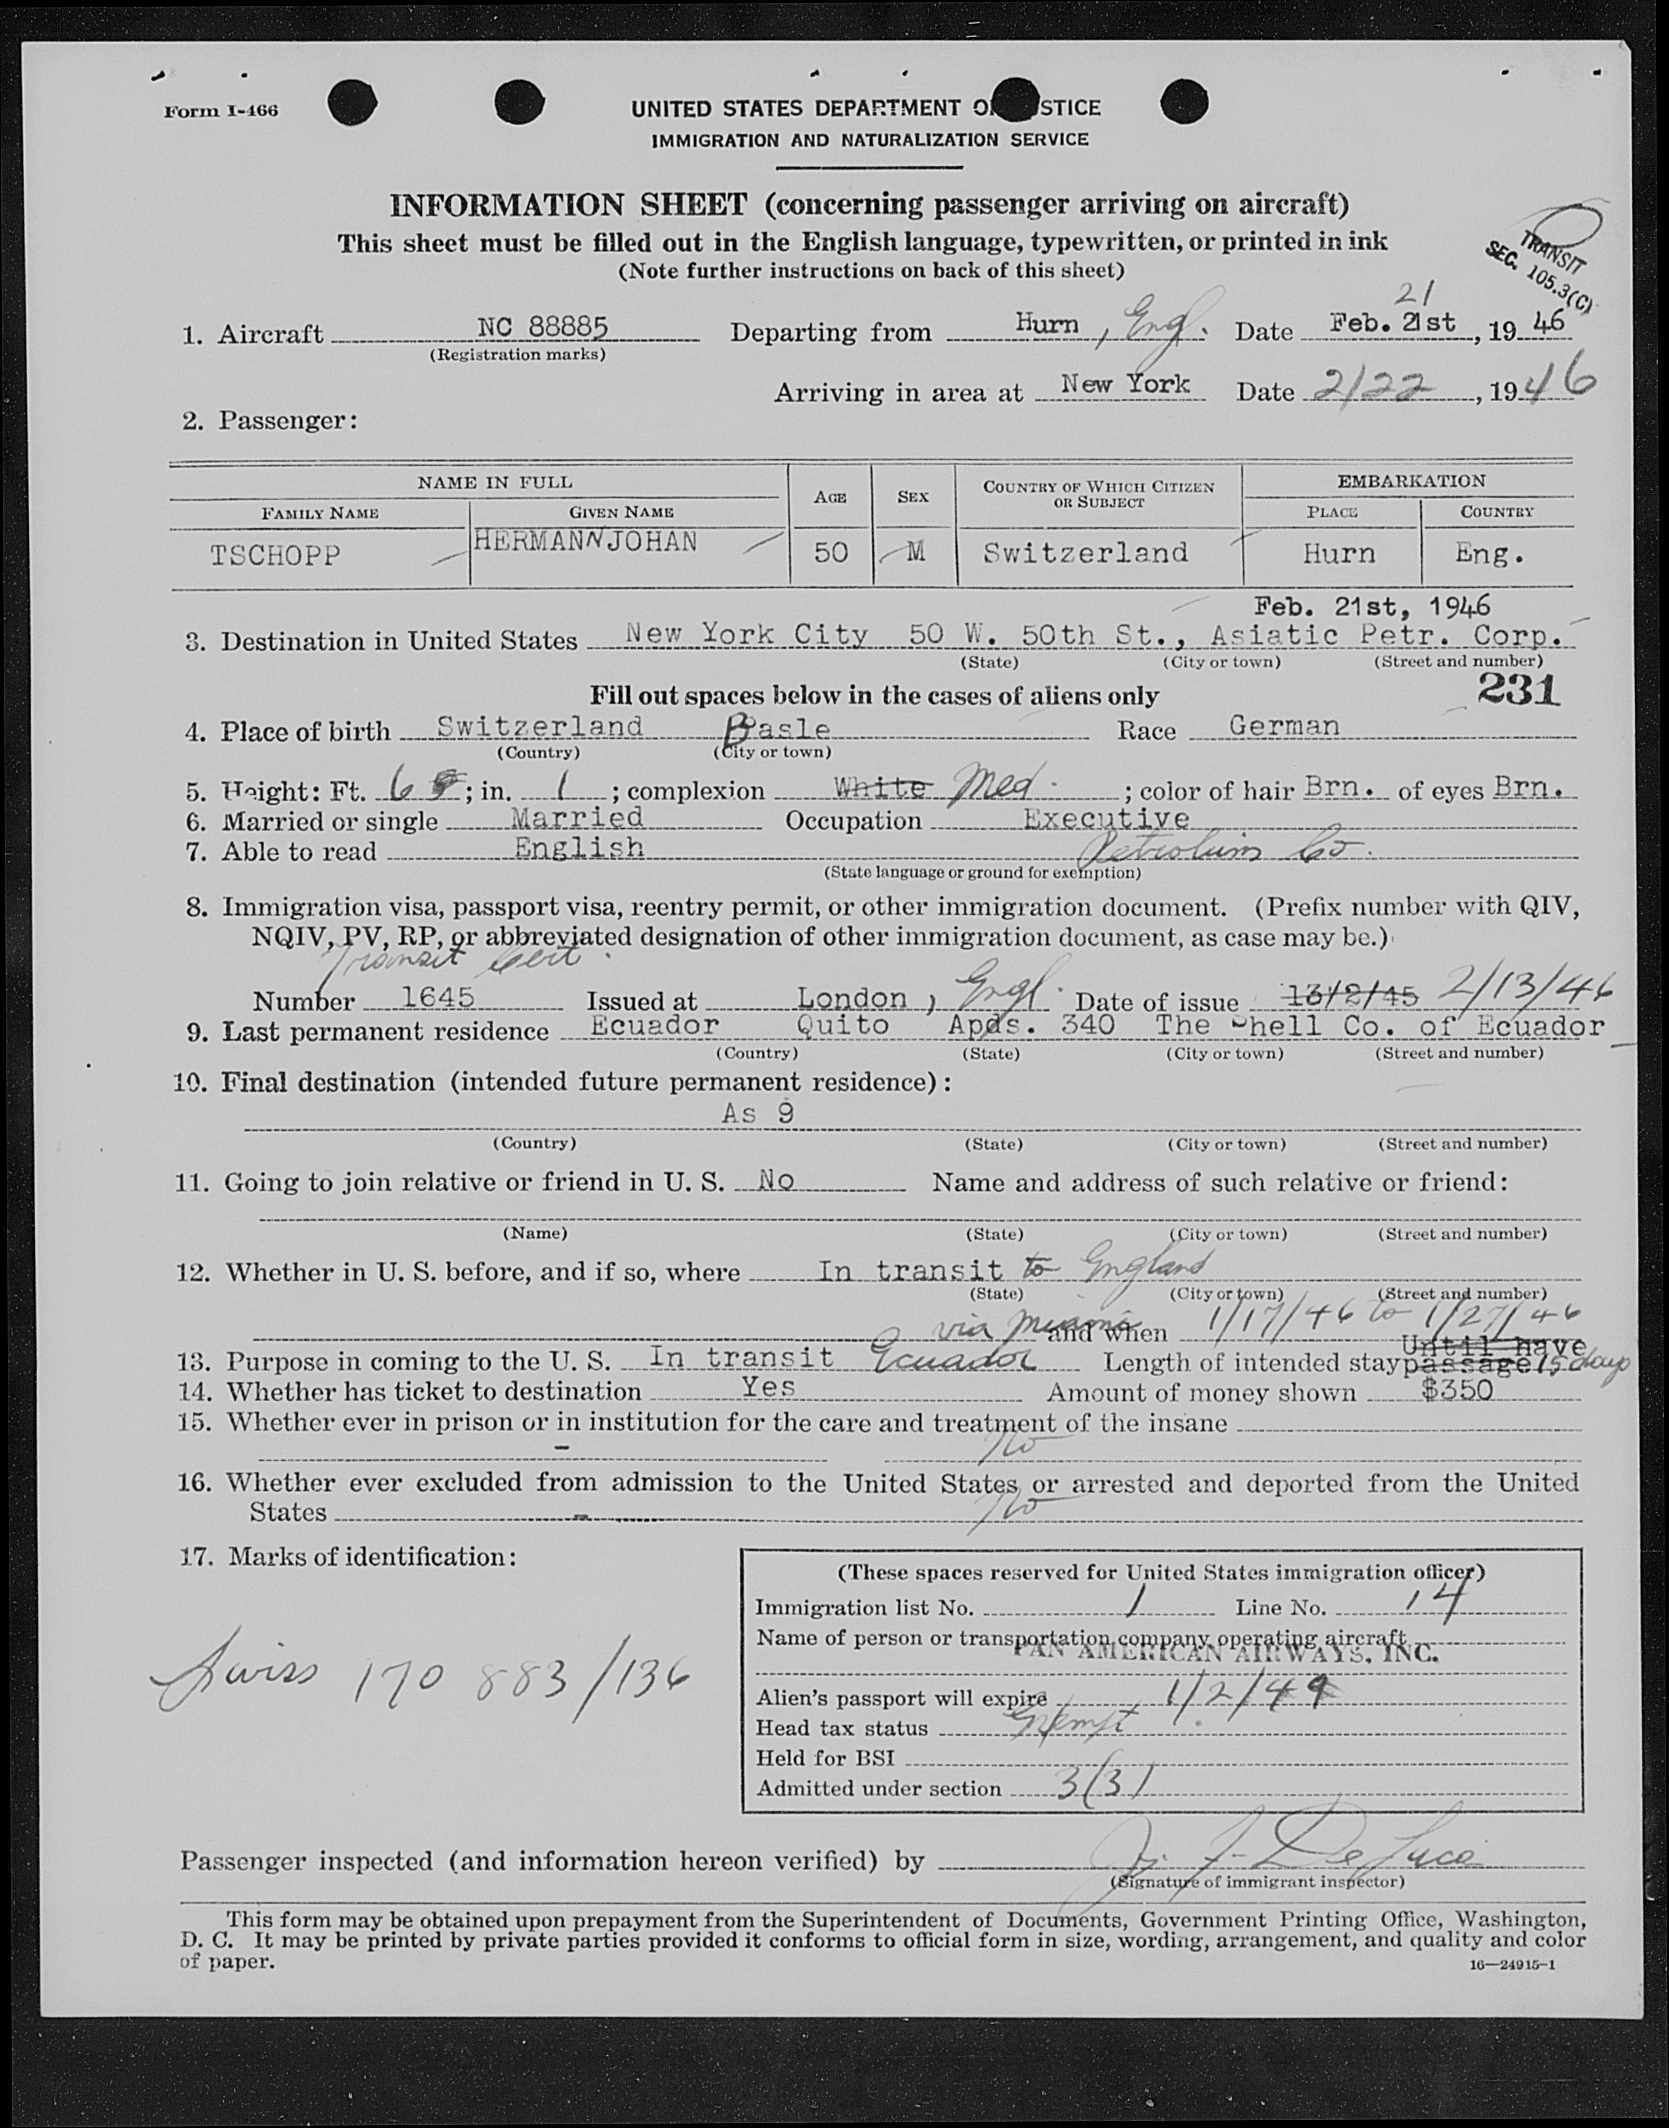 Form I-466
UNITED STATES DEPARTMENT OF JUSTICE
IMMIGRATION AND NATURALIZATION SERVICE
INFORMATION SHEET (concerning passenger arriving on aircraft)
This sheet must be filled out in the English language, typewritten, or printed in ink
(Note further instructions on back of this sheet)
TRANSIT
SEC. 105.3(C)
21
1. Aircraft NC 88885 Departing from Hurn, Eng. Date Feb. 21st, 1946
(Registration marks)
Arriving in area at New York Date 2/22, 1946
2. Passenger:
NAME IN FULL AGE SEX COUNTRY OF WHICH CITIZEN OR SUBJECT EMBARKATION
FAMILY NAME GIVEN NAME PLACE COUNTRY
TSCHOPP HERMANN JOHAN 50 M Switzerland Hurn Eng.
Feb. 21st, 1946
3. Destination in United States New York City 50 W. 50th St., Asiatic Petr. Corp.
(State) (City or town) (Street and number)
Fill out spaces below in the cases of aliens only 231
4. Place of birth Switzerland Basle Race German
(Country) (City or town)
5. Height: Ft. 6; in. 1; complexion White Med.; color of hair Brn. of eyes Brn.
6. Married or single Married Occupation Executive
7. Able to read English Petroleum Co.
(State language or ground for exemption)
8. Immigration visa, passport visa, reentry permit, or other immigration document. (Prefix number with QIV,
NQIV, PV, RP, or abbreviated designation of other immigration document, as case may be.)
Transit Cert.
Number 1645 Issued at London, Engl. Date of issue 13/2/45 2/13/46
9. Last permanent residence Ecuador Quito Apds. 340 The Shell Co. of Ecuador
(Country) (State) (City or town) (Street and number)
10. Final destination (intended future permanent residence):
As 9
(Country) (State) (City or town) (Street and number)
11. Going to join relative or friend in U. S. No Name and address of such relative or friend:
(Name) (State) (City or town) (Street and number)
12. Whether in U. S. before, and if so, where In transit to England
(State) (City or town) (Street and number)
via Miami and when 1/17/46 to 1/27/46
Until have
13. Purpose in coming to the U. S. In transit Ecuador Length of intended stay passage 15 days
14. Whether has ticket to destination Yes Amount of money shown $350
15. Whether ever in prison or in institution for the care and treatment of the insane
- No
16. Whether ever excluded from admission to the United States or arrested and deported from the United
States - No
17. Marks of identification:
Swiss 170 883/136
(These spaces reserved for United States immigration officer)
Immigration list No. 1 Line No. 14
Name of person or transportation company operating aircraft
PAN AMERICAN AIRWAYS, INC.
Alien's passport will expire 1/2/49
Head tax status Exempt
Held for BSI
Admitted under section 3(3)
Passenger inspected (and information hereon verified) by J. F. De Luca
(Signature of immigrant inspector)
This form may be obtained upon prepayment from the Superintendent of Documents, Government Printing Office, Washington,
D. C. It may be printed by private parties provided it conforms to official form in size, wording, arrangement, and quality and color
of paper.
16—24915-1